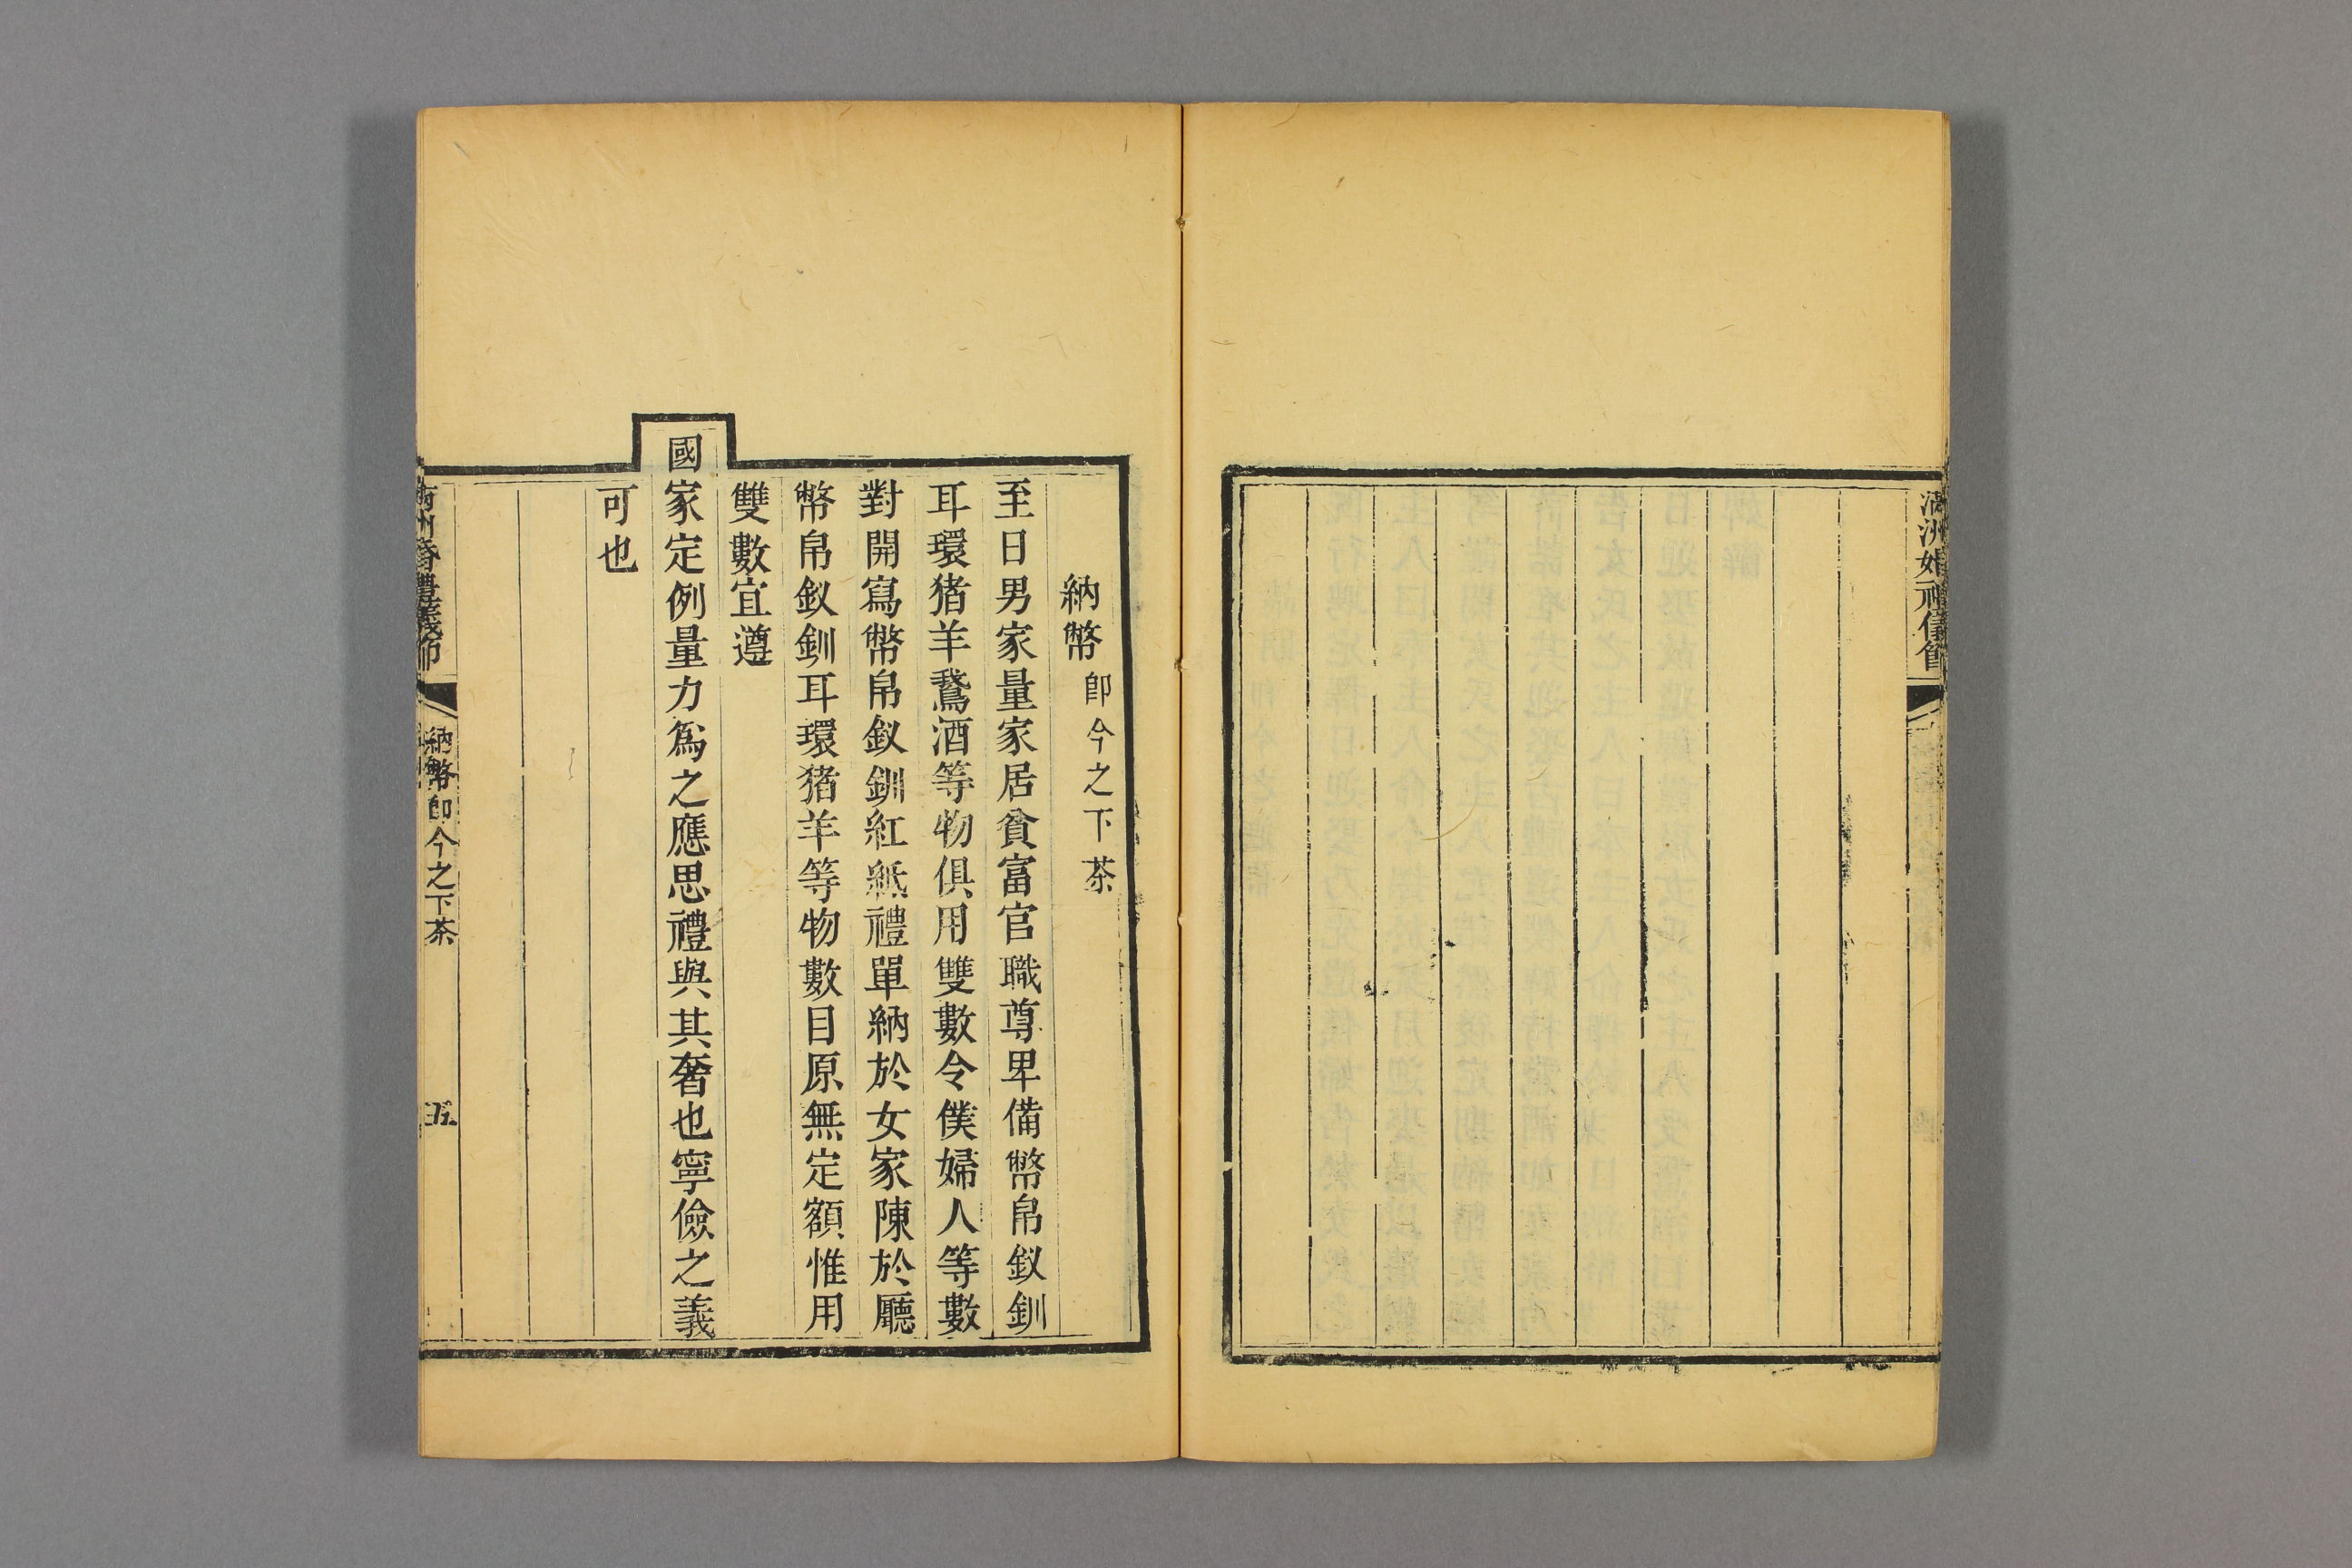 滿洲婚禮儀節
納幣即今之下茶
至日男家量家居貧富官職尊卑備幣帛釵釧
耳環猪羊鵞酒等物俱用雙數令僕婦人等數
對開寫幣帛釵釧紅紙禮單納於女家陳於廳
幣帛釵釧耳環猪羊等物數目原無定額惟用
雙數宜遵
國家定例量力爲之應思禮與其奢也寧儉之義
可也
滿洲婚禮儀節
納幣即今之下茶
五